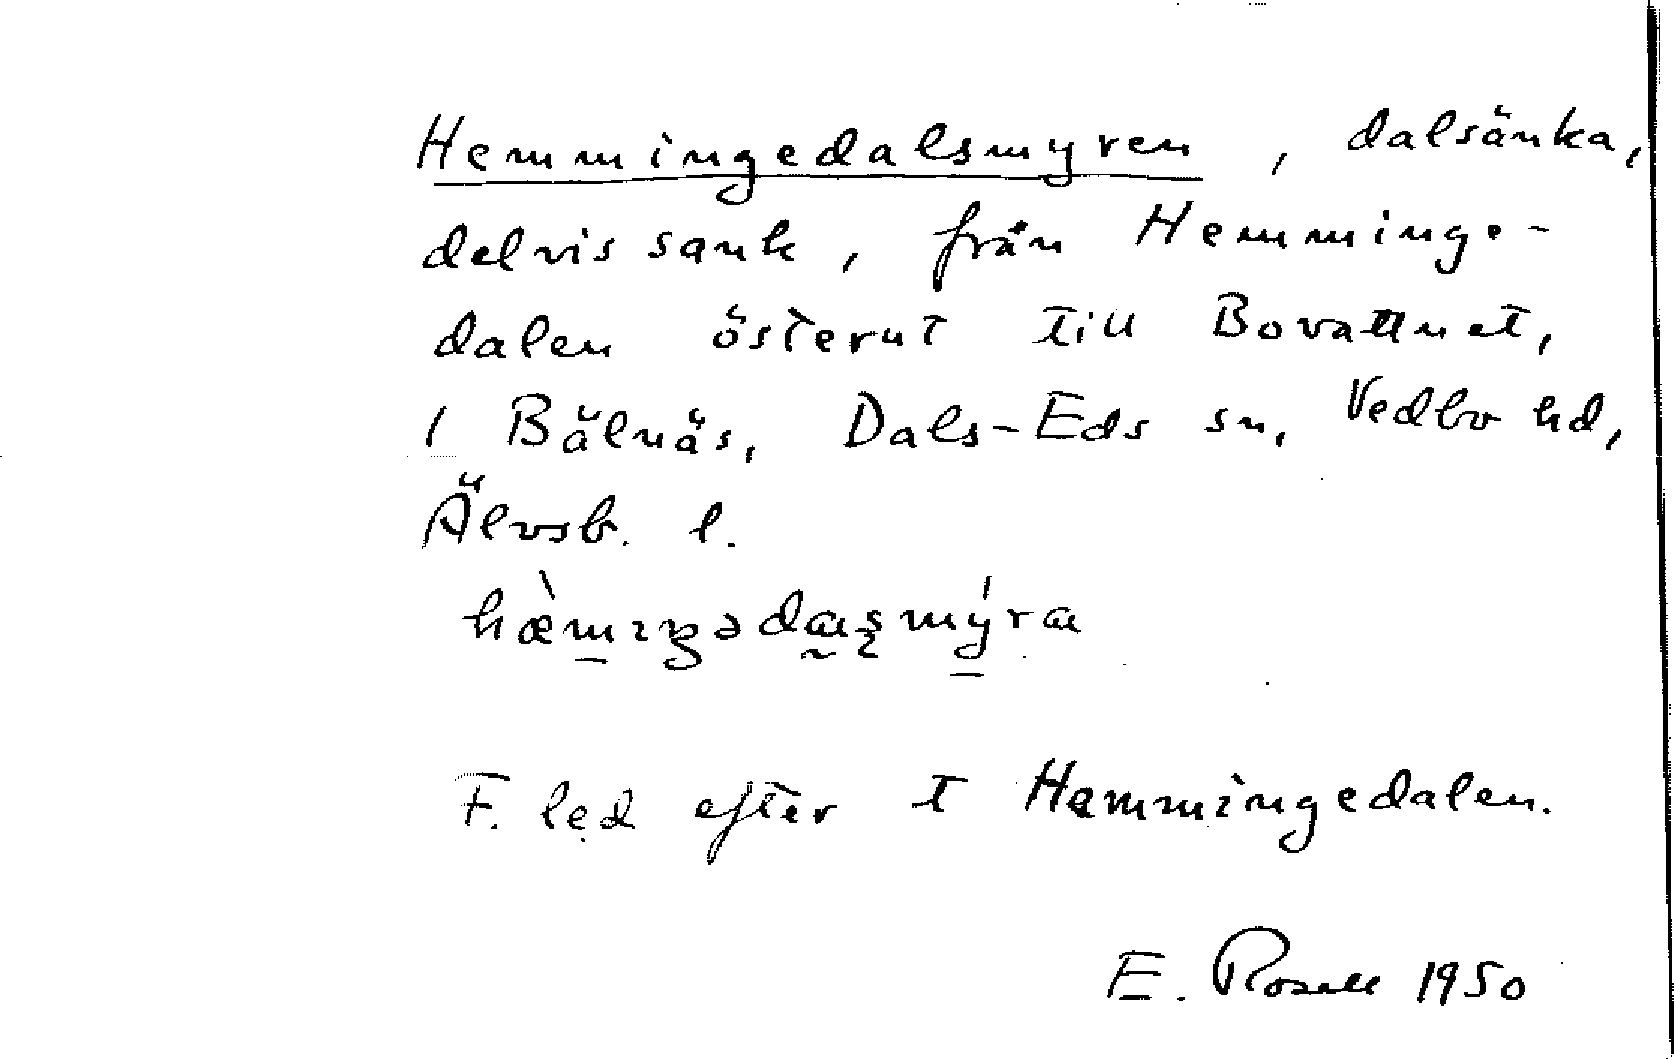 Hemmingedalsmyren, dalsänka,
delvis sank, från Hemminge-
dalen österut till Bovattnet,
1 Bälnäs, Dals-Eds sn, Vedbo hd,
Älvsb. l.
F. led efter t Hemmingedalen.
E. Rosell 1950